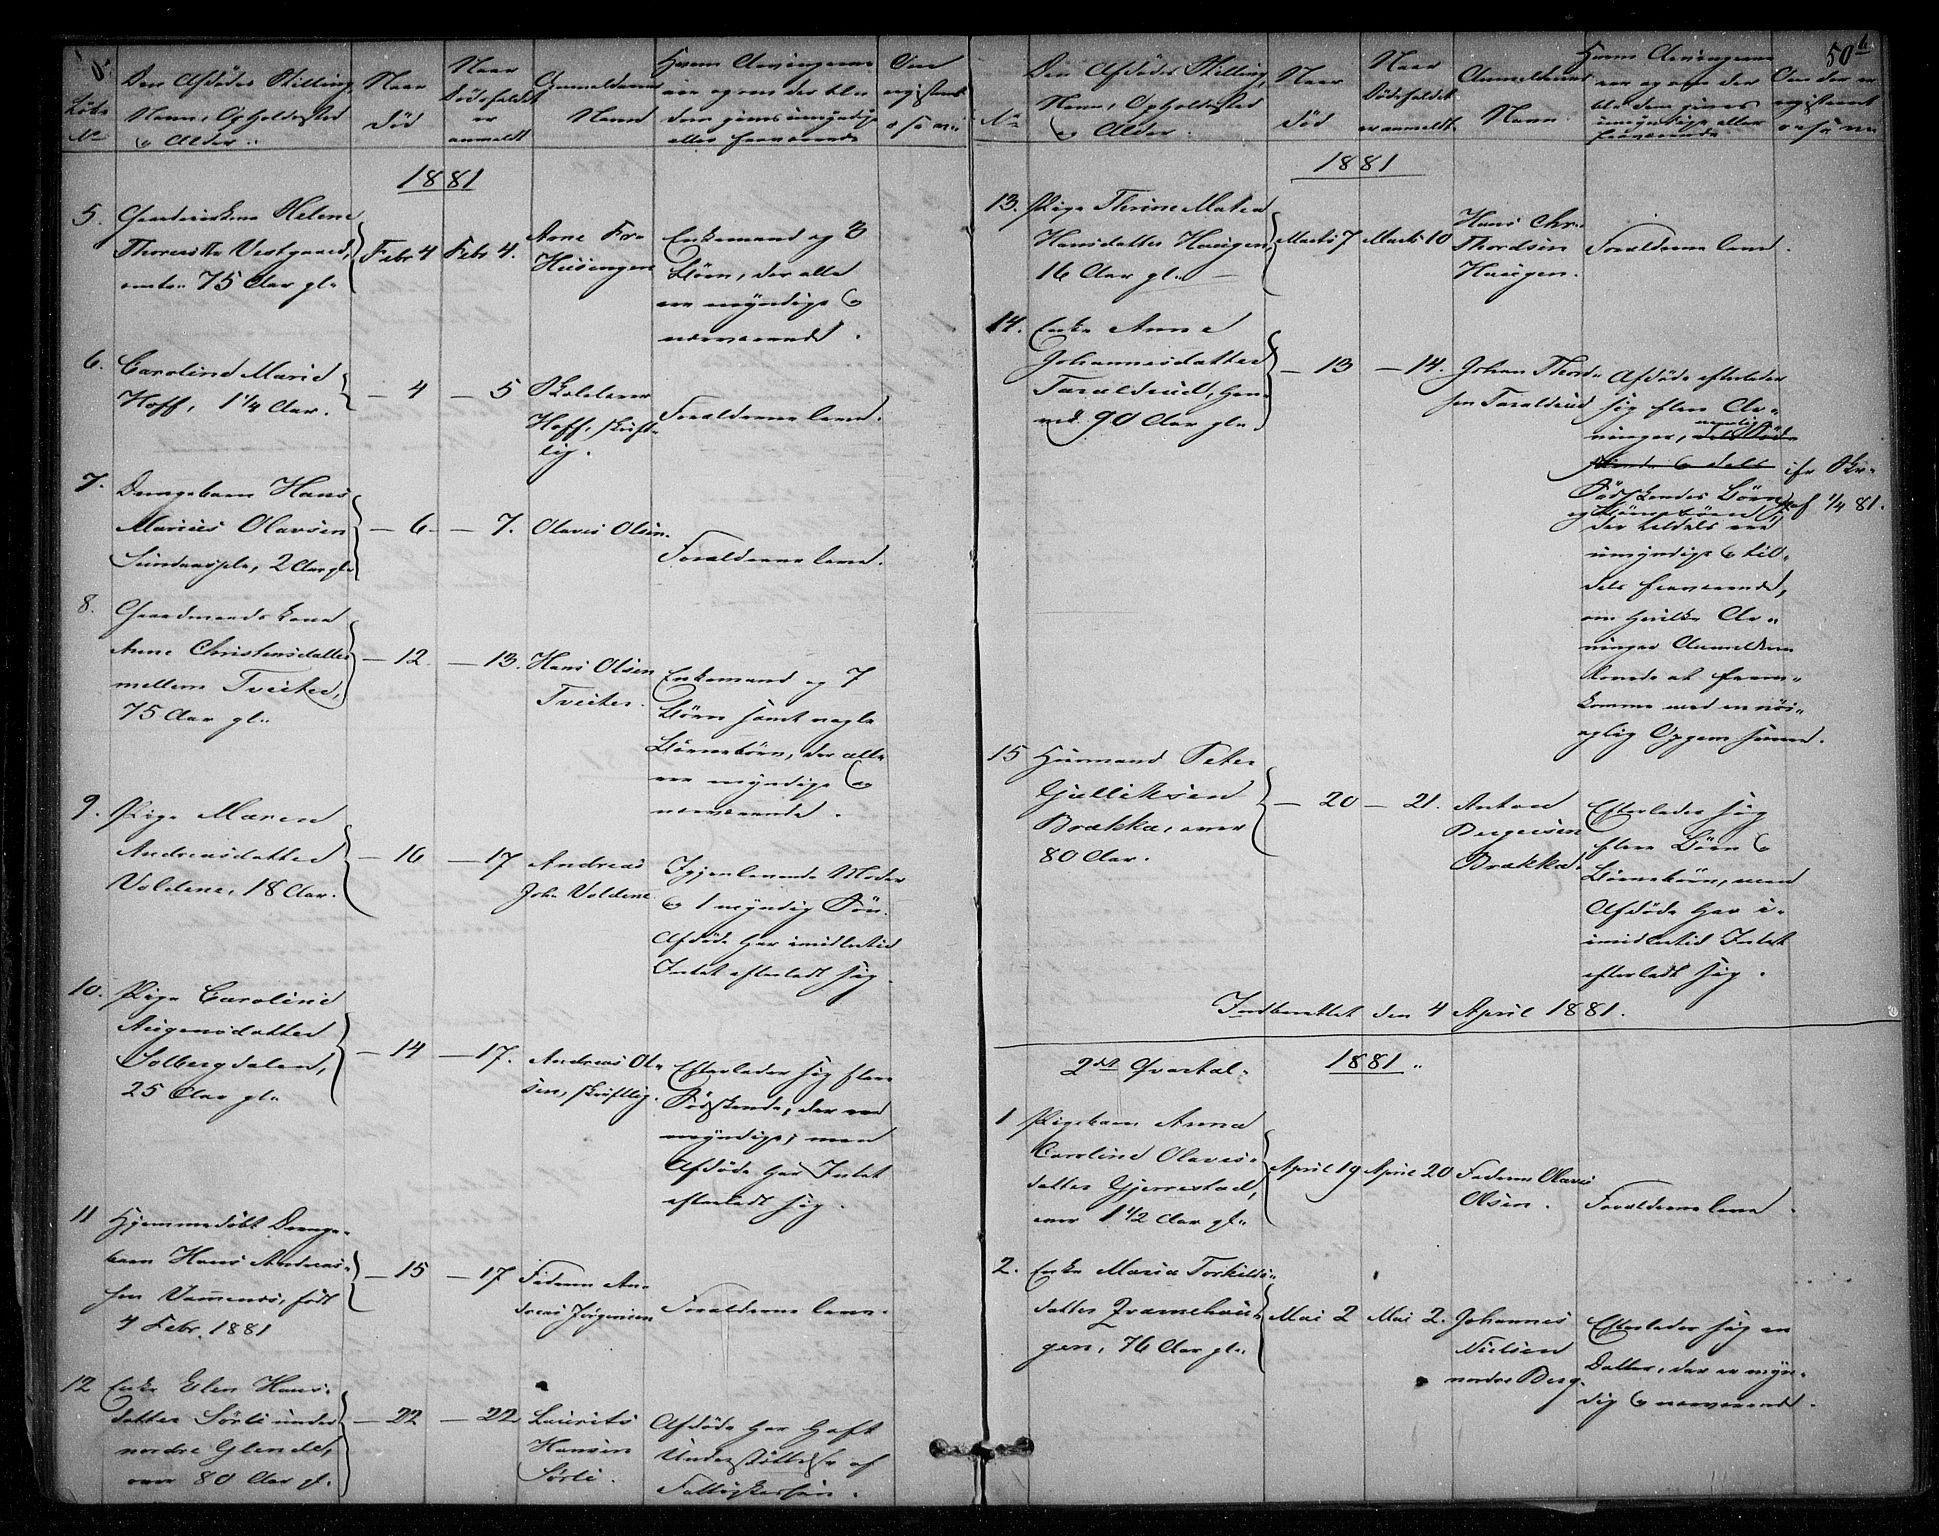 Löbe
No
Den Afdödes Stilling,
Navn, Opholdssted
& Alder.
Naar
död
Naar
Dödsfaldet
er
anmeldt
Anmelderens
Navn
Hvem Arvingerne
ere og om der blandt
dem gives umyndige
eller fraværende
Om
registreret
1881
5. Gaardmandskone Helene
Thoresdtr Vestgaard,
omtr. 75 Aar gl.
Febr 4
Febr 4.
Arne
Husengen
Enkemand og 8
Börn, der alle
ere myndige &
nærværende.
6. Caroline Marie
Hoff, 1 1/4 Aar.
— 4
— 5
Skolelærer
Hoff, skrift-
lig.
Forældrene leve.
7. Drengebarn Hans
Marius Olavsen
2 Aar gl.
— 6
— 7.
Olaves Olsen.
Forældrene leve.
8. Gaardmandskone
Anne Christensdatter
mellem Tveiter,
75 Aar gl.
— 12.
— 13.
Hans Olsen
Tveiter.
Enkemand og 7
Börn samt nogle
Börnebörn, der alle
ere myndige &
nærværende.
9. Pige Maren
Andreasdatter
Voldene, 18 Aar.
— 16
— 17
Andreas
Joh. Voldene
Igjenlevende Moder
& 1 myndig Sön.
Afdöde har imidlertid
Intet efterladt sig.
10. Pige Caroline
Solbergdalen,
25 Aar gl.
— 14
— 17.
Andreas Ol-
sen, skriftlig.
Efterlader sig flere
Södskende, der ere
myndige; men
Afdöde har Intet
efterladt sig.
11 Hjemmedöbt Drenge-
barn Hans Andreas-
sen Vammens, födt
4 Febr. 1881
— 15
— 17
Faderen An-
dreas Jörgensen
Forældrene leve.
12 Enke Elen Hans-
datter Sörli under
nordre Glende,
over 80 Aar gl.
— 22
— 22
Laurits
Hansen
Sörli.
Afdöde har havt
Understöttelse af
Fattigkassen.
50 b
No
Den Afdödes Stilling,
Navn, Opholdssted
& Alder.
Naar
död
Naar
Dödsfaldet
er anmeldt.
Anmelderens
Navn
Hvem Arvingerne
ere og om der
blandt dem gives
umyndige eller
fraværende
Om der er
registreret
1881
13. Pige Thrine Matea
Hansdatter Haugen,
16 Aar gl. —
Marts 7
Marts 10
Hans Chr.
Thordsen
Haugen.
Forældrene leve.
14. Enke Anne
Johannesdatter
Taraldrud,
90 Aar gl.
— 13
— 14.
Johan Thord-
sen Taraldrud
Afdöde efterlader
sig flere Ar-
vinger, nemlig
Södskendes Börn
og Börnebörn
der tildels ere
umyndige & til-
dels fraværende,
om hvilke Ar-
vinger Anmelderen
lovede at frem-
komme med en nöi-
agtig Opgave senere.
af 1/4 81.
15 Huusmand Peter
Gulliksen
Brække, over
80 Aar.
— 20
— 21.
Anton
Brække.
Efterlader sig
flere Börn &
Börnebörn, men
Afdöde har i-
imidlertid Intet
efterladt sig.
Indberettet den 4 April 1881.
2det Qvartal.
1881.
1 Pigebarn Anna
Caroline Olaves-
datter Gjerrestad,
over 1 1/2 Aar gl.
April 19
April 20
Faderen Olaves
Olsen.
Forældrene leve.
2. Enke Maria Torkilds-
datter
gen, 76 Aar gl.
Mai 2
Mai 2.
Johannes
Nielsen
nordre Berg.
Efterlader sig en
Datter, der er myn-
dig & nærværende.